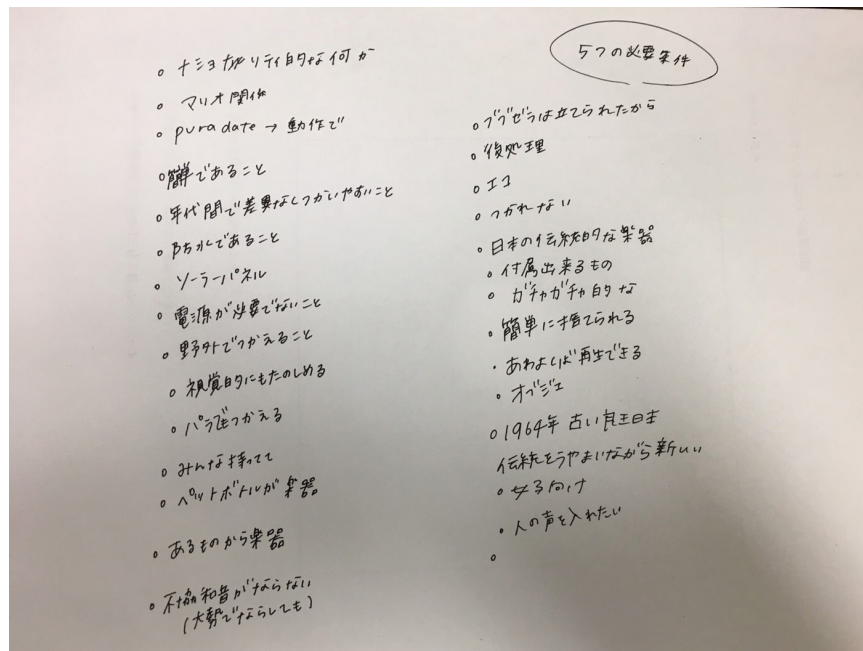 ◦ ナショナリティ的な何か
◦ マリオ関係
◦ pura date → 動作で
◦ 簡単であること
◦ 年代間で差異なくつかいやすいこと
◦ 防水であること
◦ ソーラーパネル
◦ 電源が必要でないこと
◦ 野外でつかえること
◦ 視覚的にもたのしめる
◦ パラでもつかえる
◦ みんな持ってて
◦ ペットボトルが楽器
◦ あるものから楽器
◦ 不協和音がならない
(大勢でならしても)
5つの必要条件
◦ ブブゼラは立てられたから
◦ 後処理
◦ エコ
◦ つかれない
◦ 日本の伝統的な楽器
◦ 付属出来るもの
◦ ガチャガチャ的な
◦ 簡単に捨てられる
・ あわよくば再生できる
◦ オブジェ
◦ 1964年 古い
伝統をうやまいながら新しい
◦ 女子向け
◦ 人の声を入れたい
◦